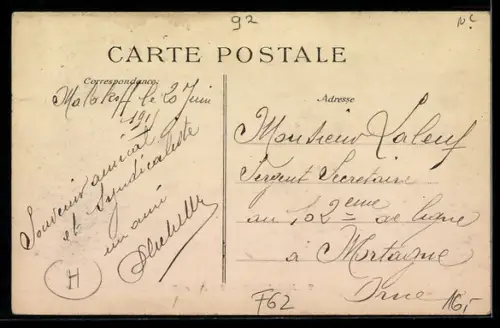 92
CARTE POSTALE
Correspondance
Adresse
Malakoff le 20 Juin
1911
Souvenir amical
et Syndicaliste
un ami
H
Monsieur
Sergent Secretaire
au 102eme de ligne
à Mortagne
Orne
F62
16,-